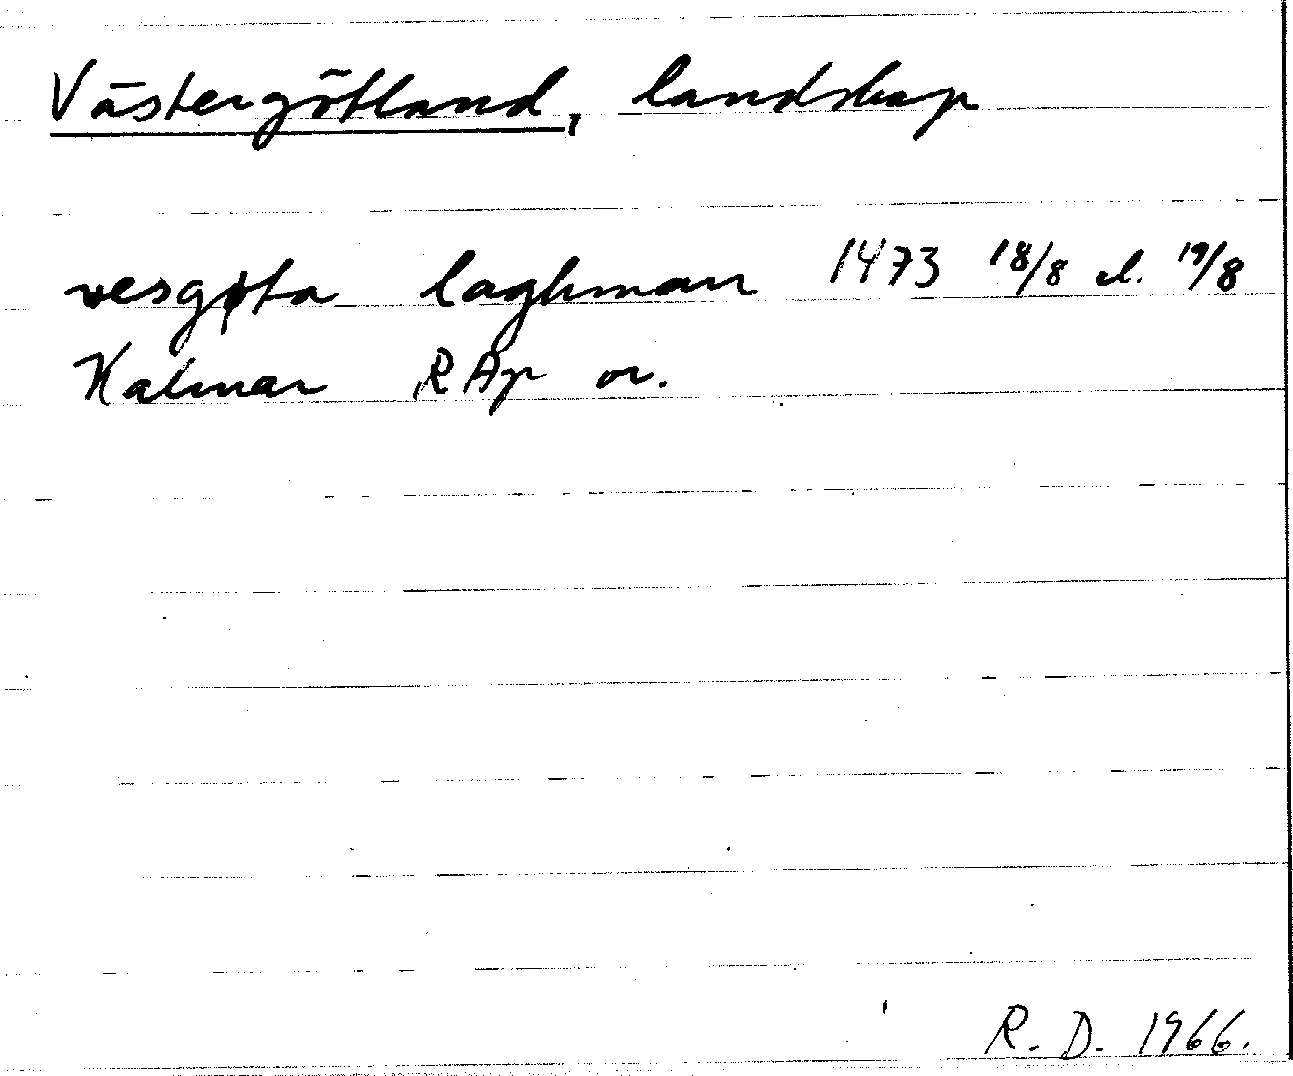 Västergötland, landskap
vesgøta laghman 1473 18/8 el. 19/8
Kalmar RAp or.
R. D. 1966.